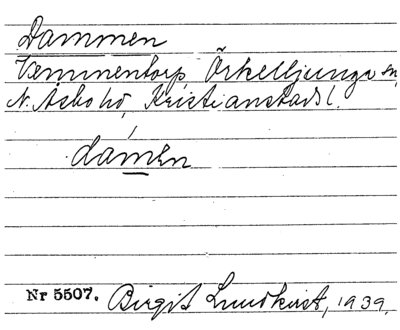 Dammen
Vemmentorp Örkelljunga sn,
N. Åsbo hd, Kristianstads l.
damen
Nr 5507. Birgit Lundkvist, 1939.